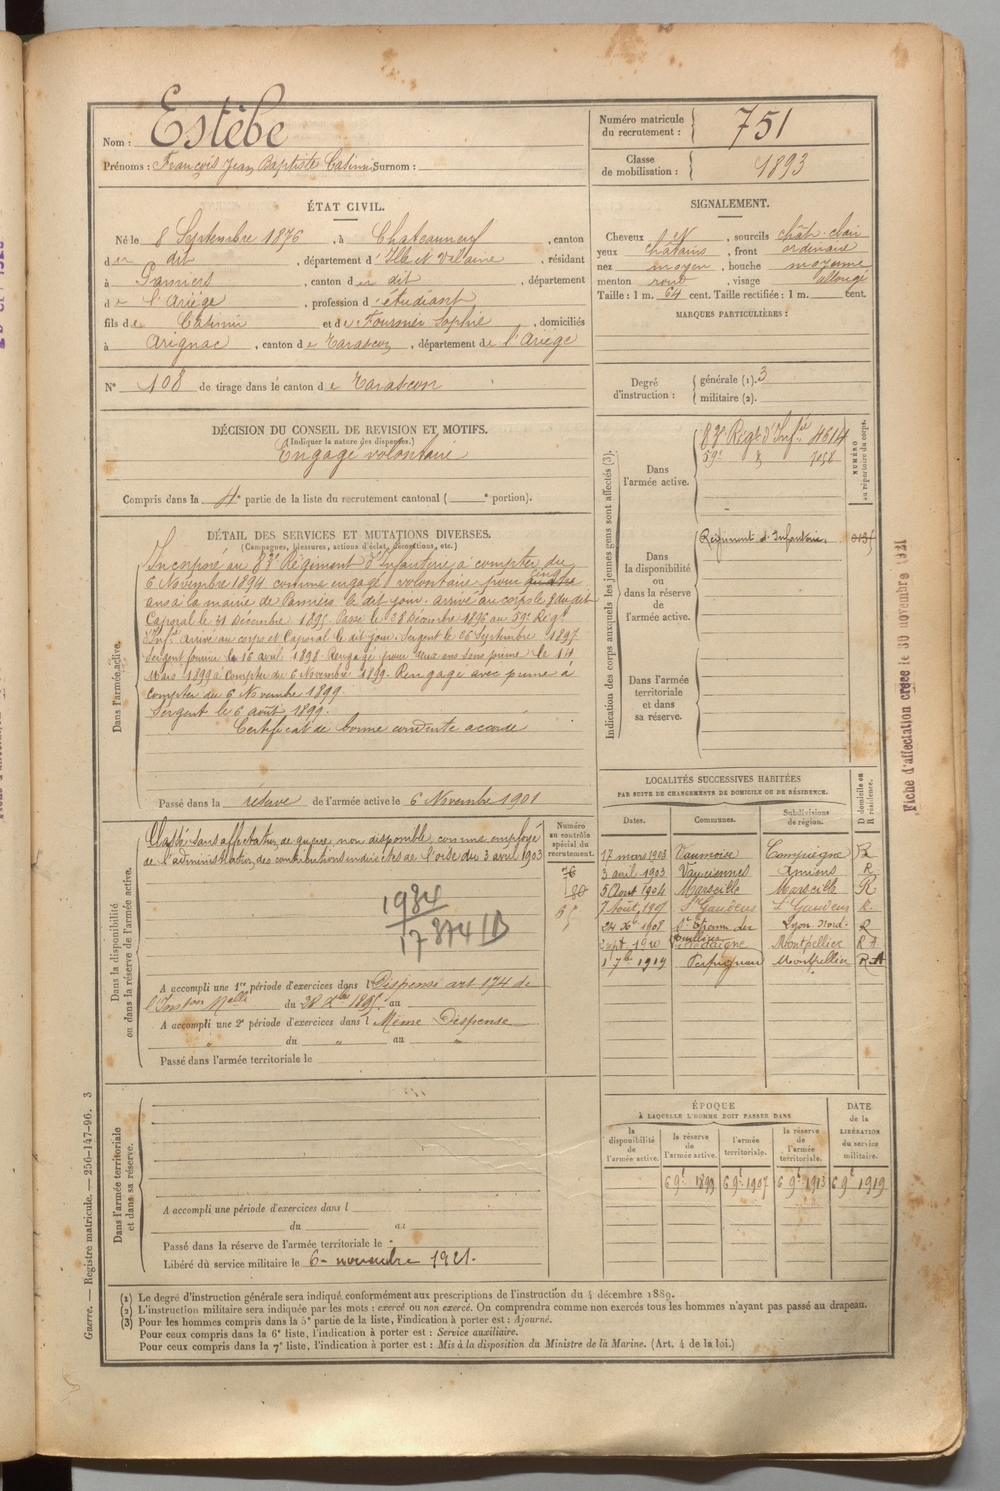 Nom : Estèbe
Prénoms : François Jean Baptiste Casimir Surnom :
Numéro matricule du recrutement : 751
Classe de mobilisation : 1893
ÉTAT CIVIL.
Né le 8 Septembre 1876, à Chateauneuf, canton
du dit, département d'Ille et Vilaine, résidant
à Pamiers, canton du dit, département
de l'Ariège, profession d'étudiant
fils de Casimir et de Fournier Sophie, domiciliés
à Arignac, canton de Tarascon, département de l'Ariège
N° 108 de tirage dans le canton de Tarascon
SIGNALEMENT.
Cheveux et, sourcils chât. clair
yeux châtains, front ordinaire
nez moyen, bouche moyenne
menton rond, visage allongé
Taille : 1 m. 64 cent. Taille rectifiée : 1 m. cent.
MARQUES PARTICULIÈRES :
Degré d'instruction : générale (1). 3
militaire (2).
DÉCISION DU CONSEIL DE REVISION ET MOTIFS.
(Indiquer la nature des dispenses.)
Engagé volontaire
Compris dans la 4e partie de la liste du recrutement cantonal ( e portion).
DÉTAIL DES SERVICES ET MUTATIONS DIVERSES.
(Campagnes, blessures, actions d'éclat, décorations, etc.)
Dans l'armée active.
Incorporé au 83e Régiment d'Infanterie à compter du
6 Novembre 1894 comme engagé volontaire pour quatre cinq
ans à la mairie de Pamiers le dit jour. arrivé au corps le 8 du dit
Caporal le 31 Décembre 1895. Passé le 28 Décembre 1896 au 59e Régt
d'Infie arrivé au corps et Caporal le dit jour. Sergent le 26 Septembre 1897.
Sergent fourrier le 16 avril 1898. Rengagé pour deux ans sans prime le 14
Mars 1899 à compter du 6 Novembre 1899. Rengagé avec prime à
compter du 6 Novembre 1899.
Sergent le 6 août 1899.
Certificat de bonne conduite accordé
Passé dans la réserve de l'armée active le 6 Novembre 1901
Indication des corps auxquels les jeunes gens sont affectés (3).
NUMÉRO au répertoire du corps.
Dans l'armée active.
83e Régt d'Infie 4614
59e 7058
Dans la disponibilité ou dans la réserve de l'armée active.
Régiment d'Infanterie.
Dans l'armée territoriale et dans sa réserve.
Fiche d'affectation créée le 30 novembre 1921
LOCALITÉS SUCCESSIVES HABITÉES
PAR SUITE DE CHANGEMENTS DE DOMICILE OU DE RÉSIDENCE.
Dates. Communes. Subdivisions de région. D domicile ou R résidence.
17 mars 1903 Vaumoise Compiègne R
3 avril 1903 Vauciennes Amiens R
5 Août 1904 Marseille Marseille R
7 Août 1907 St Gaudens St Gaudens R.
24 Xbre 1908 St Etienne des Oullières Lyon Nord. R
Sept. 1910 Montpellier R A
1 7bre 1919 Perpignan Montpellier R A
Dans la disponibilité ou dans la réserve de l'armée active.
Numéro au contrôle spécial du recrutement.
Classé sans affectation de guerre non disponible comme employé
de l'administration des contributions indirectes de l'oise du 3 avril 1903
1934
17 874 IB
A accompli une 1re période d'exercices dans l Dispensé art 174 de
l'Inston Melle du 28 Xbre 1895 au
A accompli une 2e période d'exercices dans l Même Dispense
du " au "
Passé dans l'armée territoriale le
ÉPOQUE
À LAQUELLE L'HOMME DOIT PASSER DANS
la disponibilité de l'armée active.
la réserve de l'armée active.
l'armée territoriale.
la réserve de l'armée territoriale.
DATE de la LIBÉRATION du service militaire.
6 9bre 1899 6 9bre 1907 6 9bre 1913 6 9bre 1919
Dans l'armée territoriale et dans sa réserve.
A accompli une période d'exercices dans l
du au
Passé dans la réserve de l'armée territoriale le
Libéré du service militaire le 6 novembre 1921.
Guerre. — Registre matricule. — 256-147-96. 3
(1) Le degré d'instruction générale sera indiqué conformément aux prescriptions de l'instruction du 4 décembre 1889.
(2) L'instruction militaire sera indiquée par les mots : exercé ou non exercé. On comprendra comme non exercés tous les hommes n'ayant pas passé au drapeau.
(3) Pour les hommes compris dans la 5e partie de la liste, l'indication à porter est : Ajourné.
Pour ceux compris dans la 6e liste, l'indication à porter est : Service auxiliaire.
Pour ceux compris dans la 7e liste, l'indication à porter est : Mis à la disposition du Ministre de la Marine. (Art. 4 de la loi.)